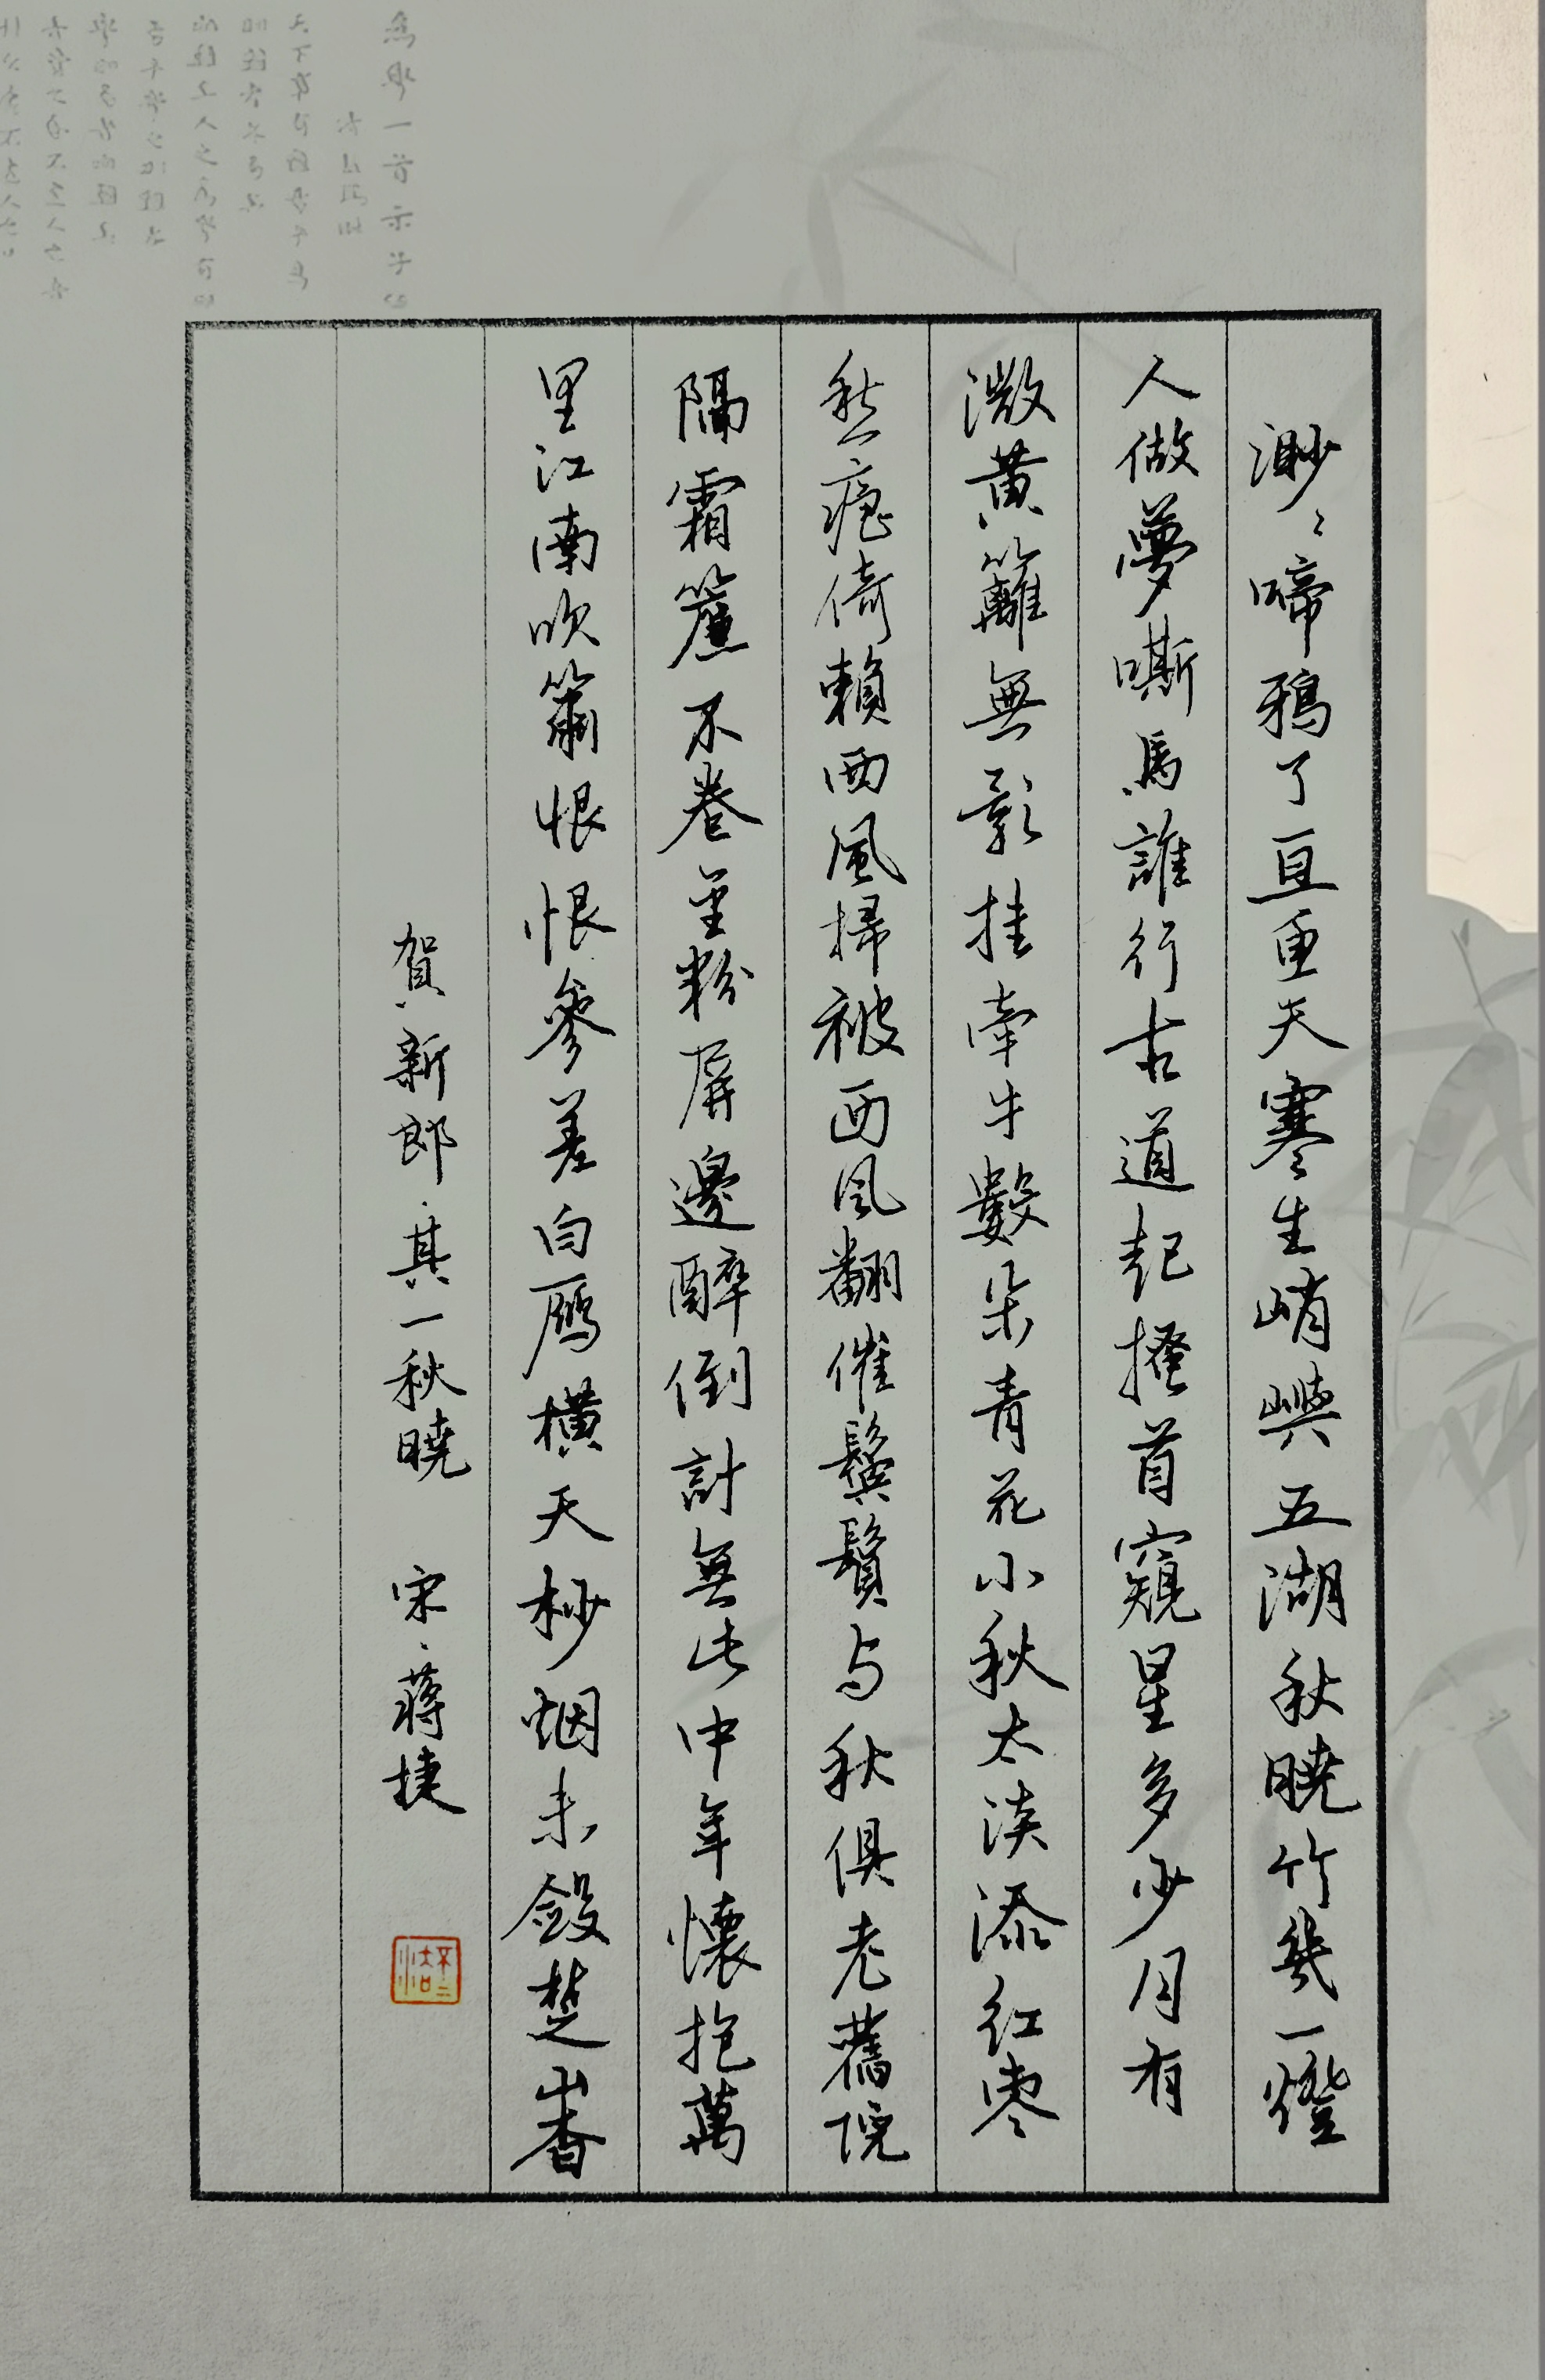 渺渺啼鴉了亘魚天寒生峭嶼五湖秋曉竹幾一燈
人做夢嘶馬誰行古道起搔首窺星多少月有
微黃籬無影挂牽牛數朵青花小秋太淡添紅棗
愁痕倚賴西風掃被西風翻催鬢鬒与秋俱老舊院
隔霜簾不卷金粉屏邊醉倒計無此中年懷抱萬
里江南吹簫恨恨參差白雁橫天杪烟未斂楚山杳
賀新郎·其一秋曉 宋·蔣捷